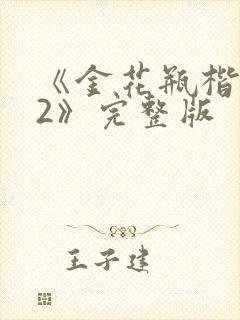 《金花瓶楷
2》完整版
王子建